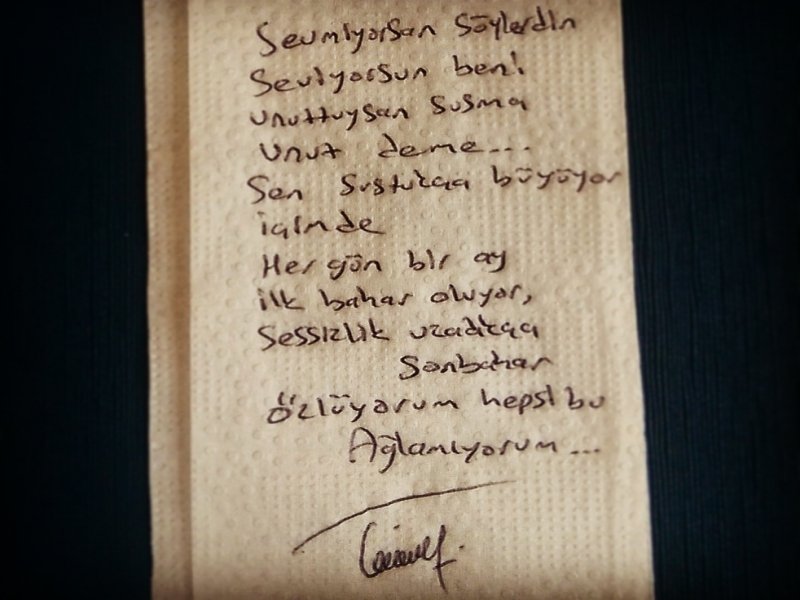 Sevmiyorsan söylerdin
Seviyorsun beni
unuttuysan susma
unut deme...
Sen sustukça büyüyor
içimde
Her gün bir ay
ilk bahar oluyor,
Sessizlik uzadıkça
Sonbahar
Özlüyorum hepsi bu
Ağlamıyorum...